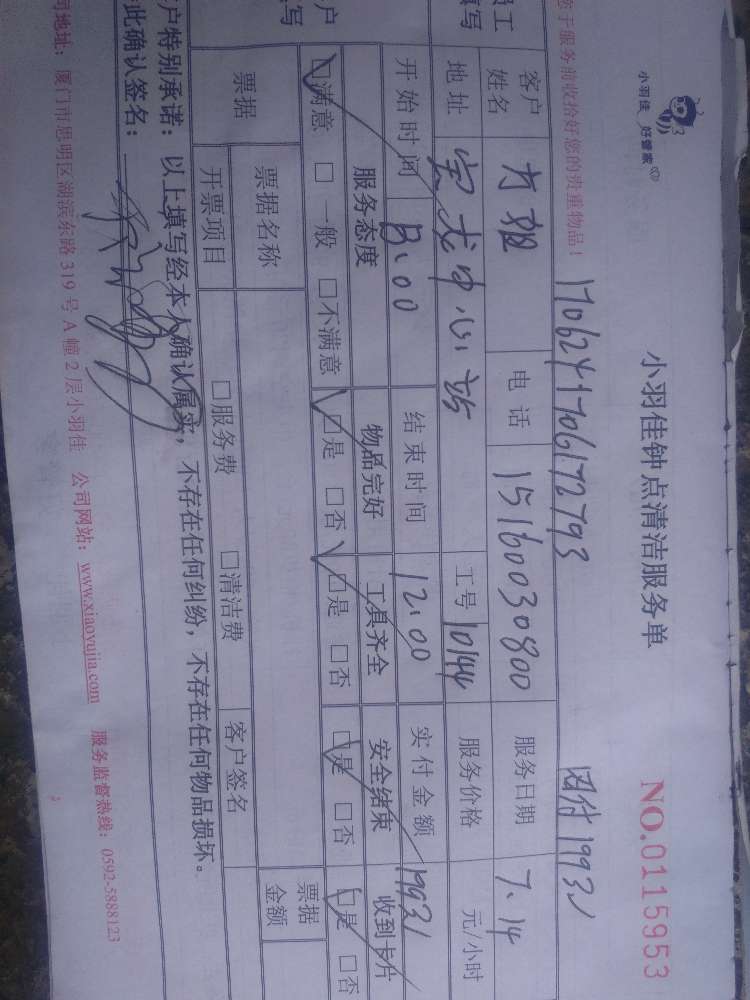 小羽佳 好管家
小羽佳钟点清洁服务单
NO.0115953
您于服务前收拾好您的贵重物品!
1706241706172793
客户姓名 方姐 电话 15160030800 服务日期 7.14
地址 宝龙中心 工号 10144 服务价格 元/小时
开始时间 8:00 结束时间 12:00 实付金额
服务态度 物品完好 工具齐全 安全结束 收到卡片
☑满意 □一般 □不满意 ☑是 □否 ☑是 □否 ☑是 □否 ☑是 □否
票据 票据名称 客户签名 票据金额
开票项目 □服务费 □清洁费
户特别承诺:以上填写经本人确认属实,不存在任何纠纷,不存在任何物品损坏。
此确认签名:
司地址:厦门市思明区湖滨东路319号A幢2层小羽佳 公司网站:www.xiaoyujia.com 服务监督热线:0592-5888123